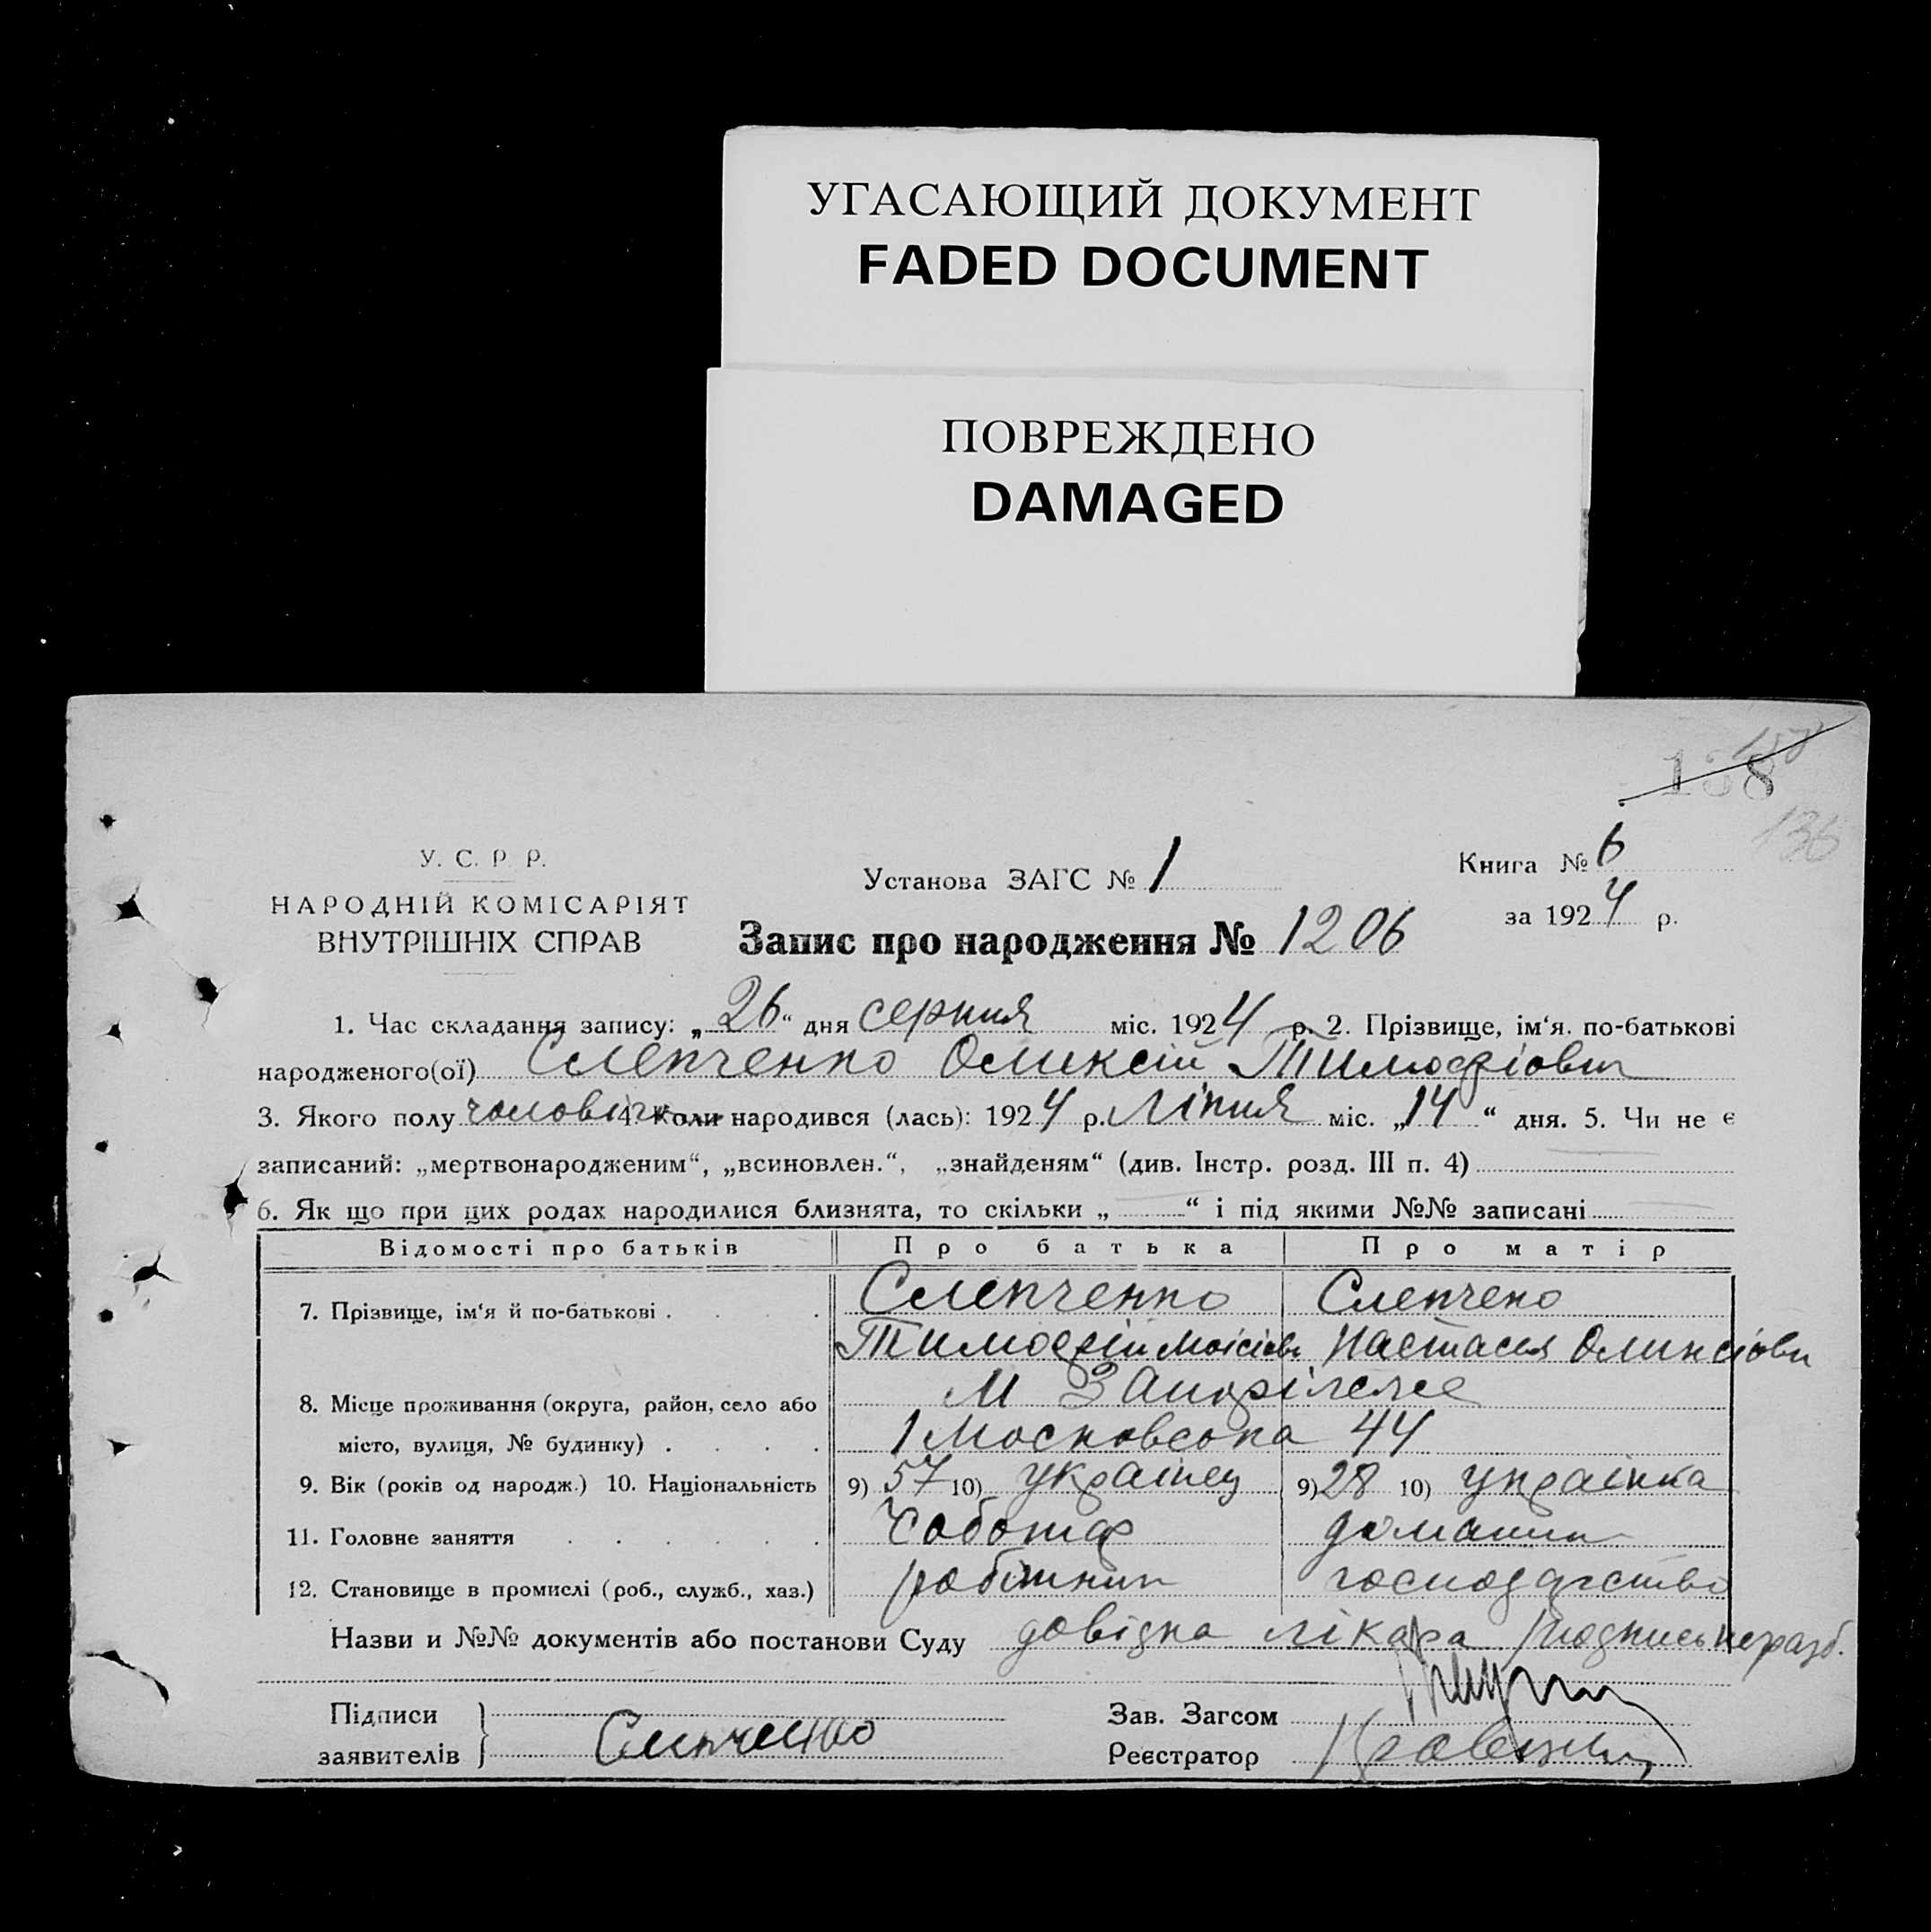 УГАСАЮЩИЙ ДОКУМЕНТ
FADED DOCUMENT
ПОВРЕЖДЕНО
DAMAGED
138
136
У. С. Р. Р.
НАРОДНІЙ КОМІСАРІЯТ
ВНУТРІШНІХ СПРАВ
Установа ЗАГС № 1
Книга № 6
за 1924 р.
Запис про народження № 1206
1. Час складання запису: „26“ дня серпня міс. 1924 р. 2. Прізвище, ім‘я. по-батькові
народженого(ої) Слепченко Оликсій Тимофіович
3. Якого полу чоловіч 4. Коли народився (лась): 1924 р. Ліпня міс. „14“ дня. 5. Чи не є
записаний: „мертвонародженим“, „всиновлен.“, „знайденям“ (див. Інстр. розд. III п. 4)
6. Як що при цих родах народилися близнята, то скільки „ “ і під якими №№ записані
Відомості про батьків Про батька Про матір
7. Прізвище, ім‘я й по-батькові . Слепченко Слепчено
Тимофій Моісіов Настасия Оликсіовн
8. Місце проживання (округа, район, село або М
місто, вулиця, № будинку) . 1 Московська 44
9. Вік (років од народж.) 10. Національність 9) 57 10) українец 9) 28 10) украінка
11. Головне заняття Чоботар домашн
12. Становище в промислі (роб., служб., хаз.) робітник господарство
Назви и №№ документів або постанови Суду довідка лікара /подпись неразб.
Підписи
заявителів Слепченко
Зав. Загсом
Реєстратор